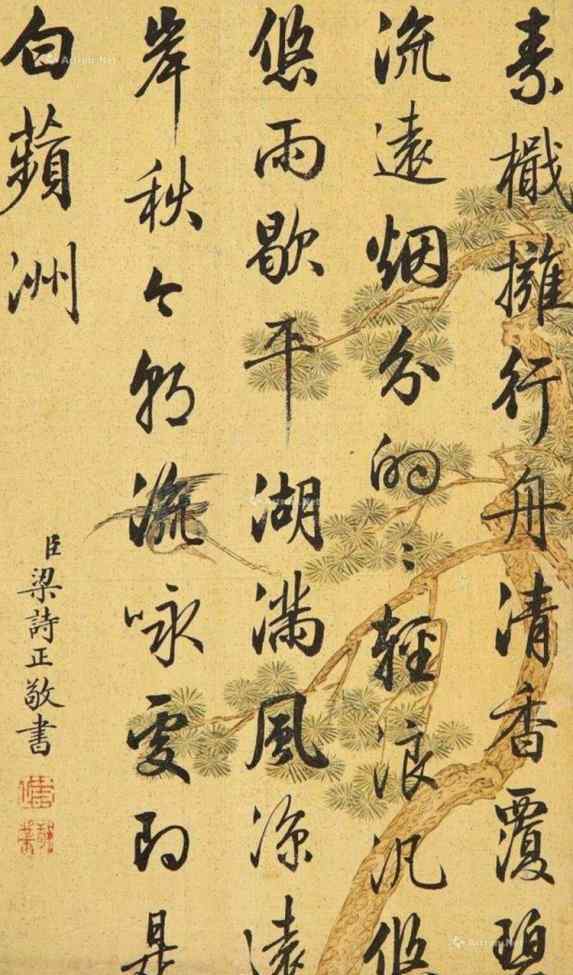 素檝擁行舟清香覆碧
流遠烟分的〻輕浪汎悠
悠雨歇平湖滿風涼遠
岸秋今朝流詠處即是
白蘋洲
臣梁詩正敬書
Artron.Net